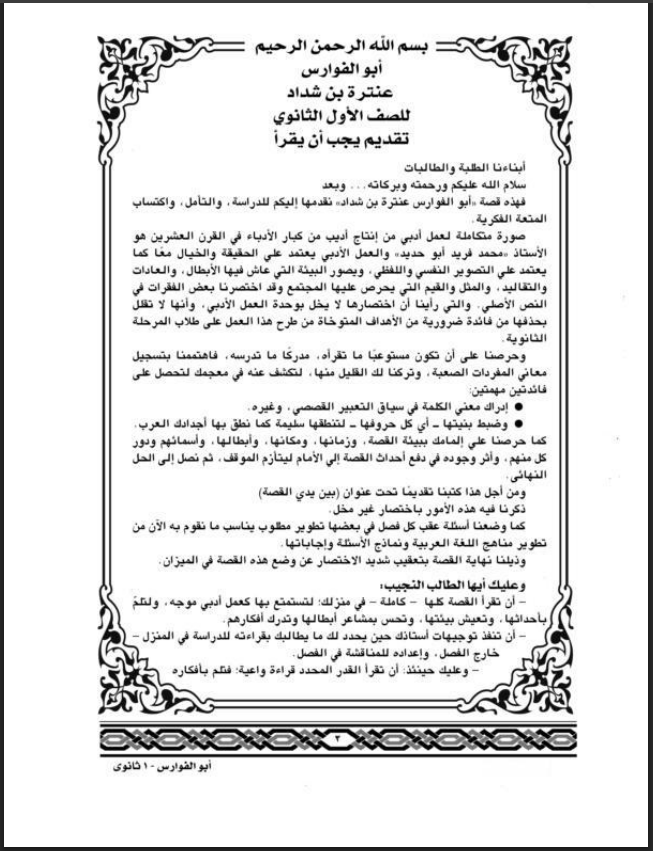 بسم الله الرحمن الرحيم
أبو الفوارس
عنترة بن شداد
للصف الأول الثانوي
تقديم يجب أن يقرأ
أبناءنا الطلبة والطالبات
سلام الله عليكم ورحمته وبركاته... وبعد
فهذه قصة «أبو الفوارس عنترة بن شداد» نقدمها إليكم للدراسة، والتأمل، واكتساب
المتعة الفكرية.
صورة متكاملة لعمل أدبي من إنتاج أديب من كبار الأدباء في القرن العشرين هو
الأستاذ «محمد فريد أبو حديد» والعمل الأدبي يعتمد علي الحقيقة والخيال معًا كما
يعتمد علي التصوير النفسي واللفظي، ويصور البيئة التي عاش فيها الأبطال، والعادات
والتقاليد، والمثل والقيم التي يحرص عليها المجتمع وقد اختصرنا بعض الفقرات في
النص الأصلي. والتي رأينا أن اختصارها لا يخل بوحدة العمل الأدبي، وأنها لا تقلل
بحذفها من فائدة ضرورية من الأهداف المتوخاة من طرح هذا العمل على طلاب المرحلة
الثانوية.
وحرصنا على أن تكون مستوعبًا ما تقرأه، مدركًا ما تدرسه، فاهتممنا بتسجيل
معاني المفردات الصعبة، وتركنا لك القليل منها، لتكشف عنه في معجمك لتحصل على
فائدتين مهمتين:
● إدراك معني الكلمة في سياق التعبير القصصي، وغيره.
● وضبط بنيتها - أي كل حروفها - لتنطقها سليمة كما نطق بها أجدادك العرب.
كما حرصنا علي إلمامك ببيئة القصة، وزمانها، ومكانها، وأبطالها، وأسمائهم ودور
كل منهم، وأثر وجوده في دفع أحداث القصة إلي الأمام ليتأزم الموقف، ثم نصل إلى الحل
النهائى.
ومن أجل هذا كتبنا تقديمًا تحت عنوان (بين يدي القصة)
ذكرنا فيه هذه الأمور باختصار غير مخل.
كما وضعنا أسئلة عقب كل فصل في بعضها تطوير مطلوب يناسب ما نقوم به الآن من
تطوير مناهج اللغة العربية ونماذج الأسئلة وإجاباتها.
وذيلنا نهاية القصة بتعقيب شديد الاختصار عن وضع هذه القصة في الميزان.
وعليك أيها الطالب النجيب:
- أن تقرأ القصة كلها - كاملة - في منزلك؛ لتستمتع بها كعمل أدبي موجه، ولتلمّ
بأحداثها، وتعيش بيئتها، وتحس بمشاعر أبطالها وتدرك أفكارهم.
- أن تنفذ توجيهات أستاذك حين يحدد لك ما يطالبك بقراءته للدراسة في المنزل -
خارج الفصل، وإعداده للمناقشة في الفصل.
- وعليك حينئذ: أن تقرأ القدر المحدد قراءة واعية؛ فتلم بأفكاره
٣
أبو الفوارس - ١ ثانوى